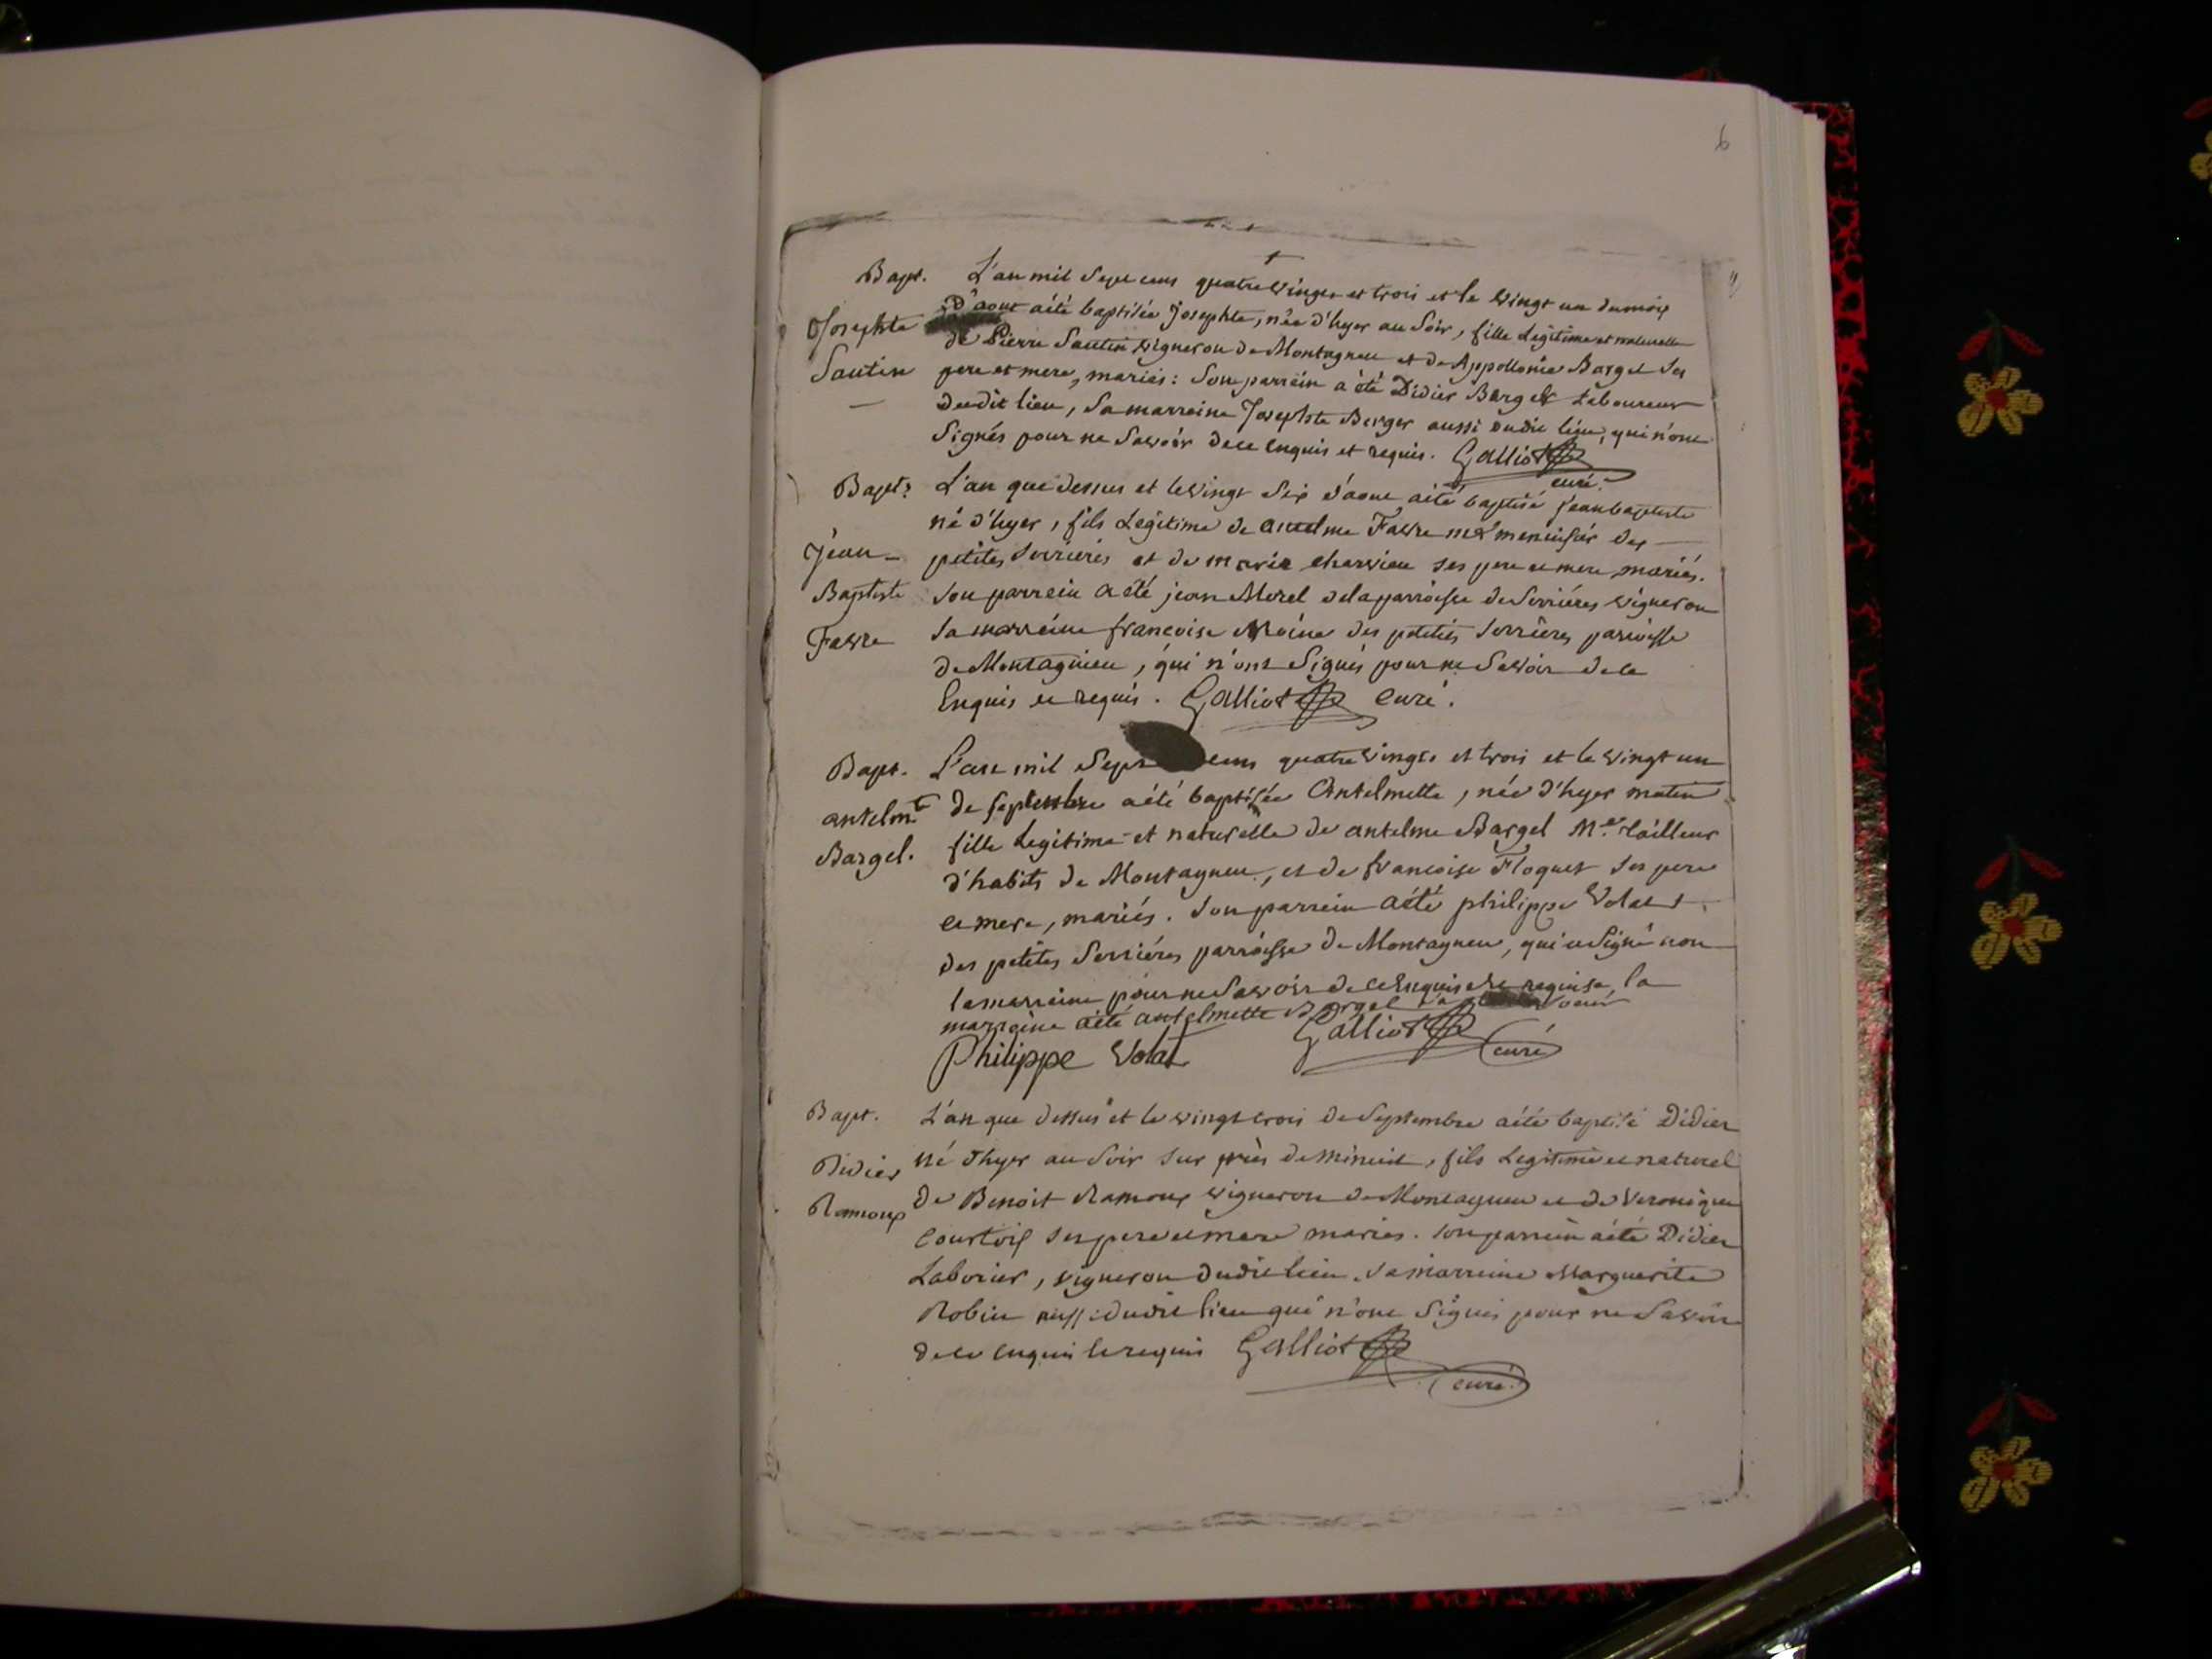 6
Bapt. L'an mil Sept cens quatre vingts et trois et le vingt un du mois
Josephte d'aout a été baptisée Josephte, née d'hyer au Soir, fille Legitime et naturelle
de Pierre Sautin vigneron de Montagneu et de Appollonie Bargel Ses
Sautin pere et mere, mariés: Son parrein a été Didier Bargel Laboureur
dudit lieu, Sa marreine Josephte Berger aussi dudit lieu, qui n'ont
Signés pour ne Savoir de ce Enquis et requis. Galliot
curé.
Bapt. L'an que dessus et le vingt Six d'aout a été baptisé jean baptiste
né d'hyer, fils Legitime de antelme Favre me menuisier des
Jean petites Serrieres et de marie chervieu ses pere et mere, mariés.
Baptiste Son parrein a été jean Morel de la parroisse de Serriéres vigneron
Favre Sa marreine francoise Moine des petites Serrieres parroisse
de Montagnieu, qui n'ont Signés pour ne Savoir de ce
Enquis et requis. Galliot curé.
Bapt. L'an mil Sept cens quatre vingts et trois et le vingt un
antelmte de septembre a été baptisée Antelmette, née d'hyer matin
Bargel. fille Legitime et naturelle de antelme Bargel Me. tailleur
d'habits de Montagneu, et de francoise Floquet Ses pere
et mere, mariés. Son parrein a été philippe Volat
des petites Serriéres parroisse de Montagneu, qui a Signé non
la marreine pour ne Savoir de ce Enquise et requise, la
marreine a été antelmette Bargel sa soeur
Philippe Volat Galliot curé
Bapt. L'an que dessus et le vingt trois de Septembre a été baptisé Didier
Didier né d'hyer au Soir sur près de minuit, fils Legitime et naturel
Ramoux de Benoit Ramoux vigneron de Montagneu et de Veronique
Courtois Ses pere et mere mariés. Son parrein a été Didier
Laborier, vigneron dudit lieu. Sa marreine Marguerite
Robin aussi dudit lieu qui n'ont Signés pour ne Savoir
de ce enquis et requis Galliot
curé.